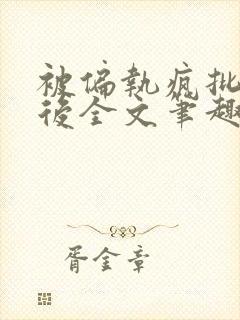 被偏執瘋批
後全文筆趣
胥金章